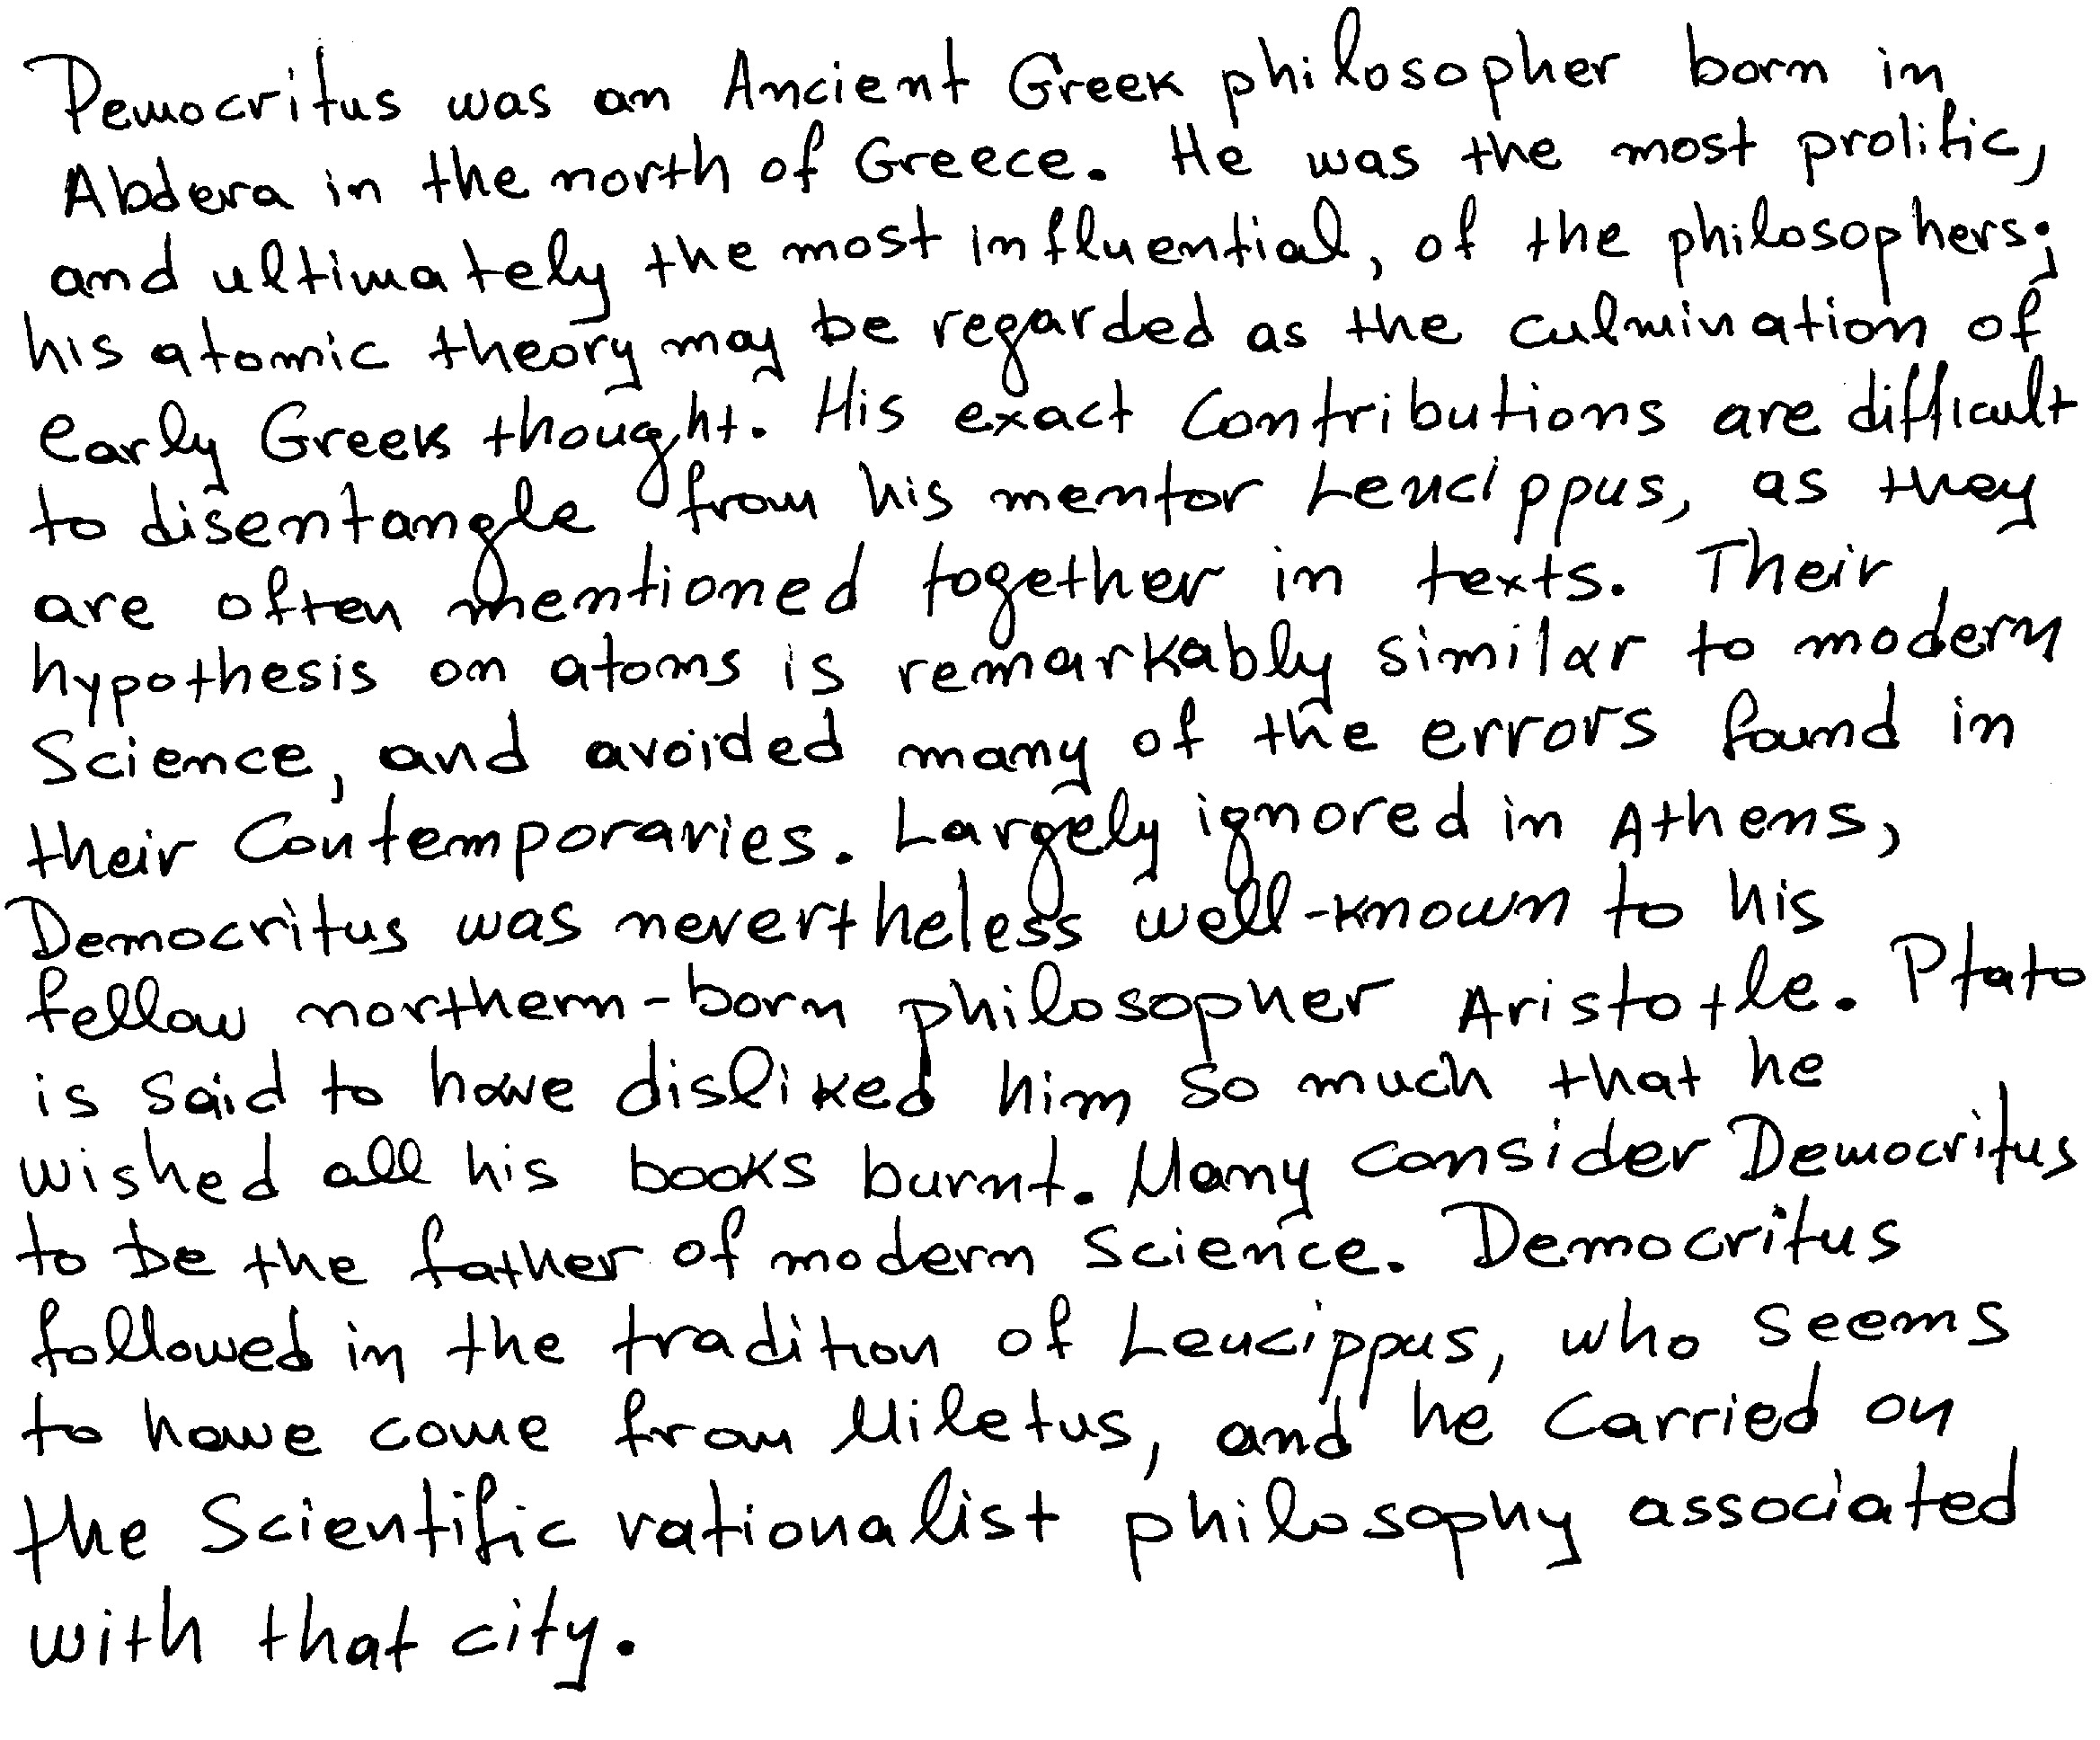 Democritus was an Ancient Greek philosopher born in
Abdera in the north of Greece. He was the most prolific,
and ultimately the most influential, of the philosophers;
his atomic theory may be regarded as the culmination of
early Greek thought. His exact contributions are difficult
to disentangle from his mentor Leucippus, as they
are often mentioned together in texts. Their
hypothesis on atoms is remarkably similar to modern
science, and avoided many of the errors found in
their contemporaries. Largely ignored in Athens,
Democritus was nevertheless well-known to his
fellow northern-born philosopher Aristotle. Plato
is said to have disliked him so much that he
wished all his books burnt. Many consider Democritus
to be the father of modern science. Democritus
followed in the tradition of Leucippus, who seems
to have come from Miletus, and he carried on
the scientific rationalist philosophy associated
with that city.